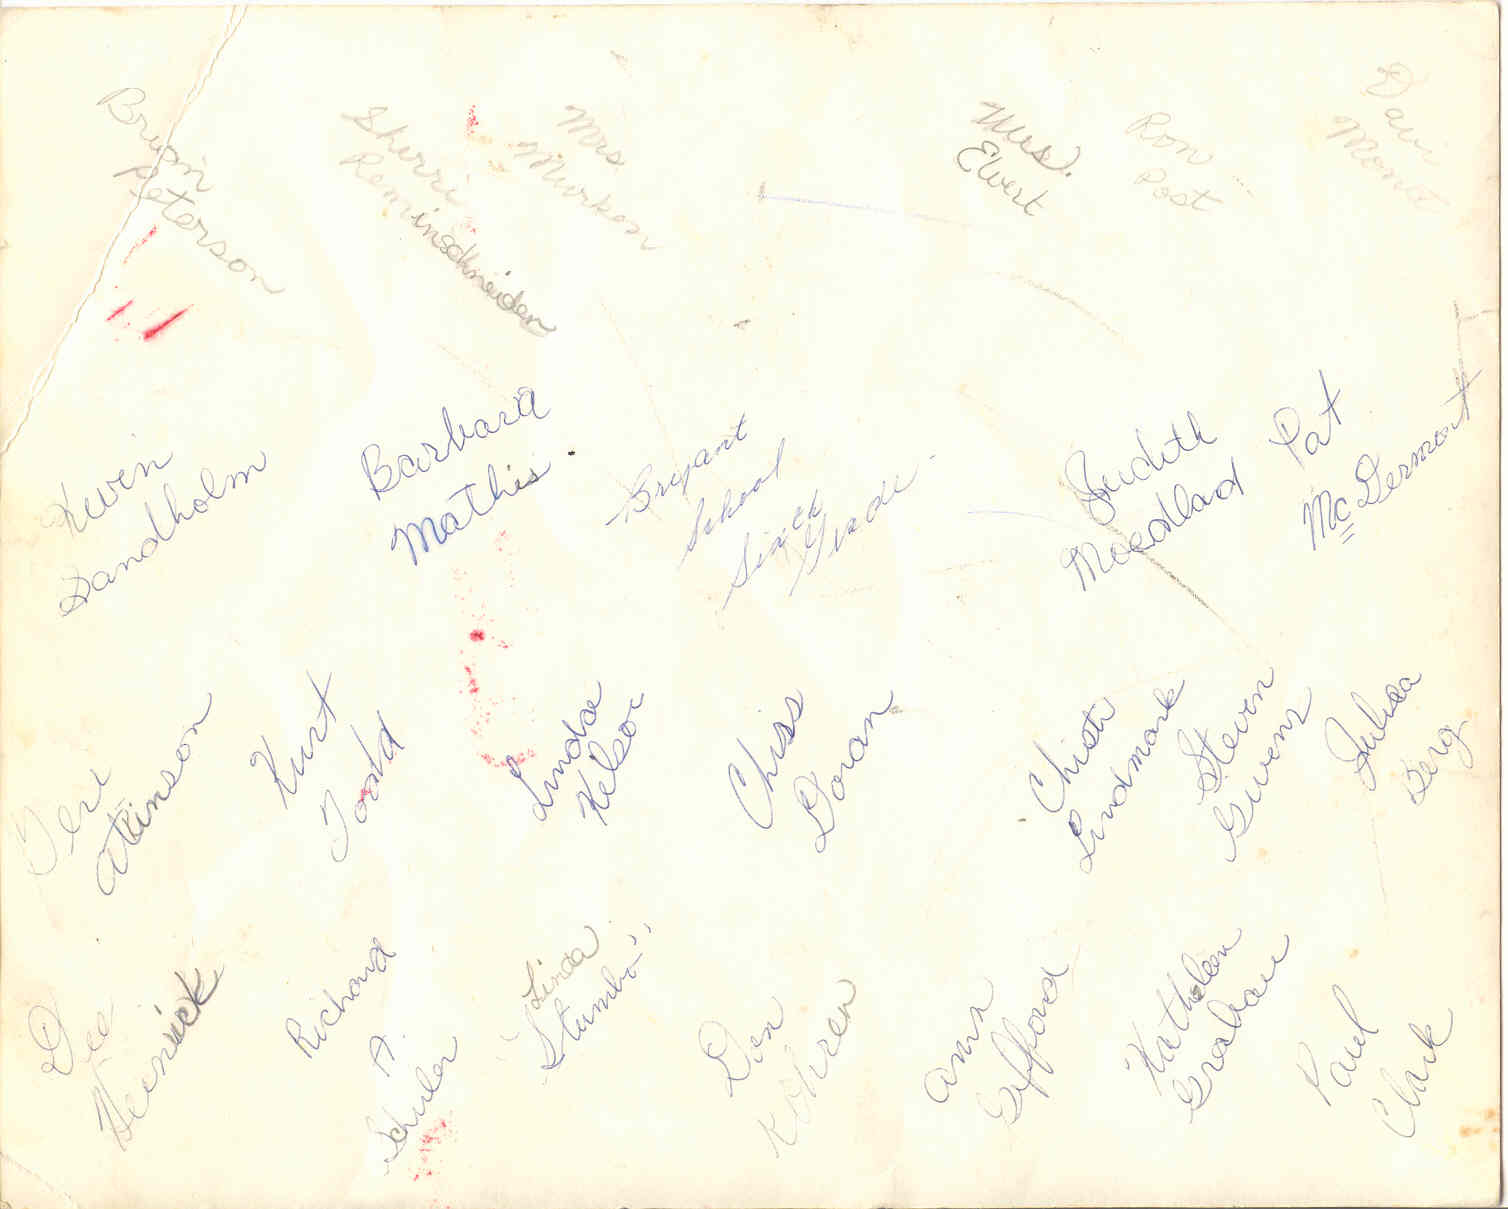 Brian
Peterson
Sherri
Reminschneider
Mrs.
Murken
Mrs.
Elvert
Ron
Post
Kevin
Sandholm
Barbara
Mathis
Bryant
School
Sixth
Grade
Judith
Pat
McDermott
Teri
Atkinson
Kurt
Todd
Lindae
Kelso
Chiss
Doran
Christi
Lindmark
Steven
Givens
Julica
Berg
Dee
Richard
A.
Schuler
Linda
Stumbo
Don
Kohren
Ann
Gifford
Kathleen
Graham
Paul
Clark